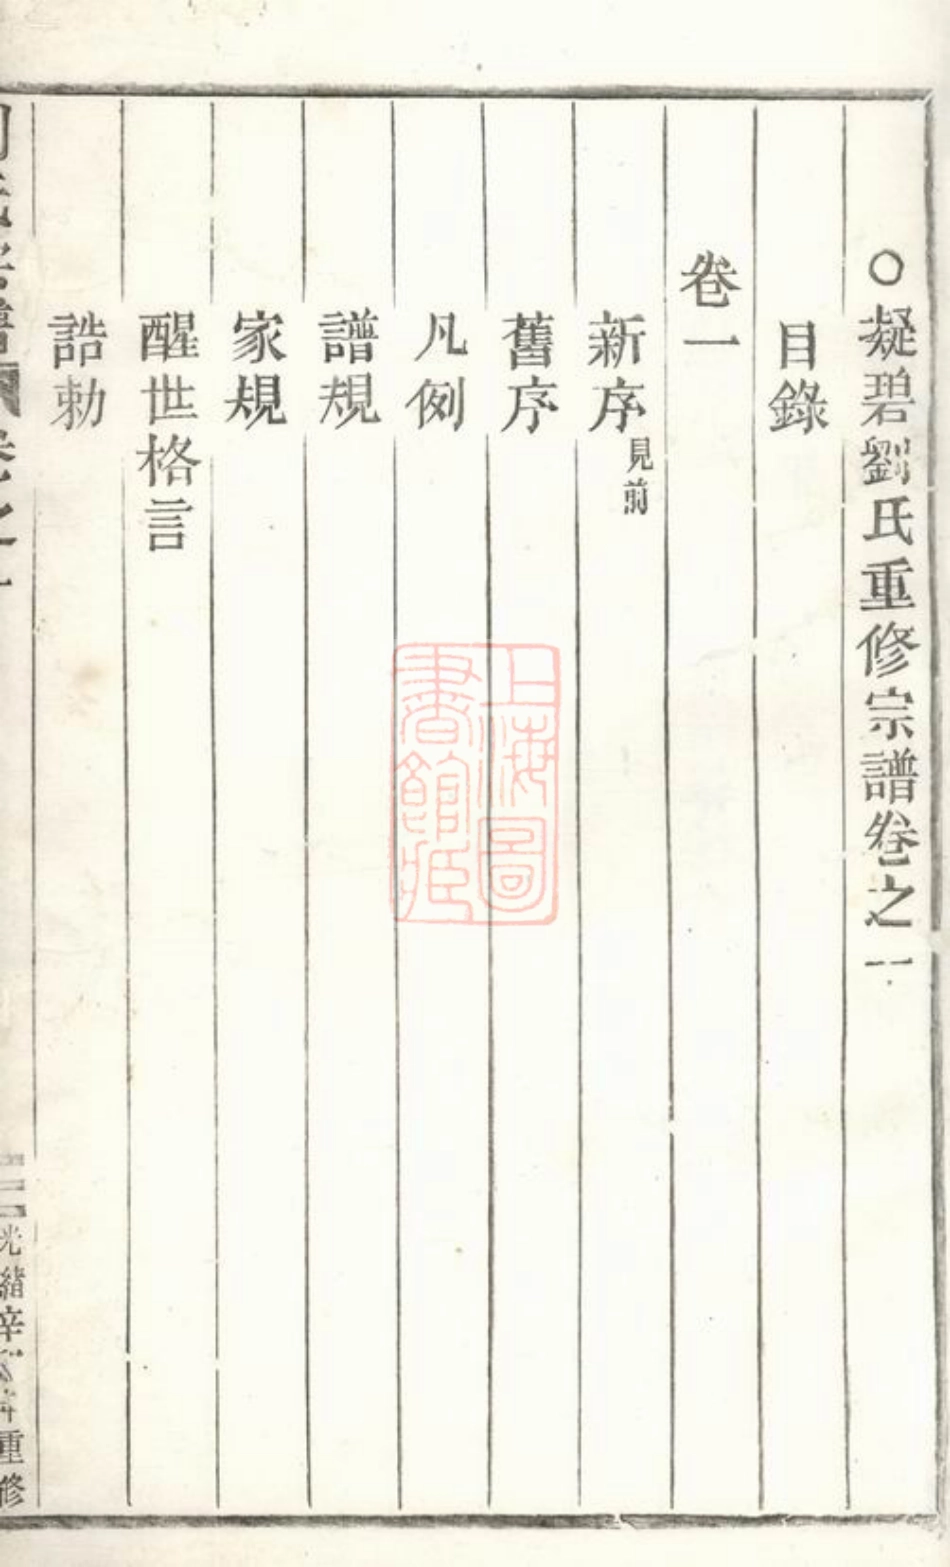 ○凝碧劉氏重修宗譜卷之一
目錄
卷一
新序見前
舊序
凡例
譜規
家規
醒世格言
誥勅
光緒辛
重修
上海圖
書館藏